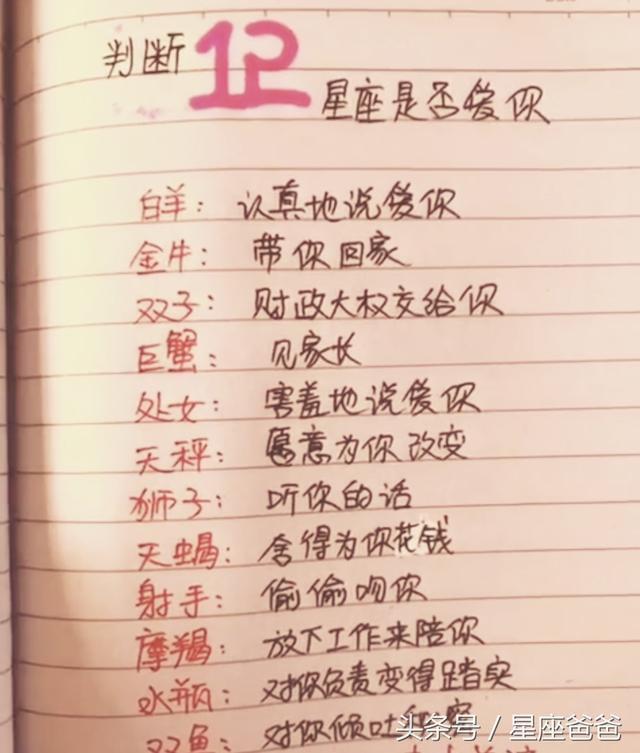 判断12
星座是否爱你
白羊：认真地说爱你
金牛：带你回家
双子：财政大权交给你
巨蟹：见家长
处女：害羞地说爱你
天秤：愿意为你改变
狮子：听你的话
天蝎：舍得为你花钱
射手：偷偷吻你
摩羯：放下工作来陪你
水瓶：对你负责变得踏实
双鱼：对你倾吐
头条号／星座爸爸